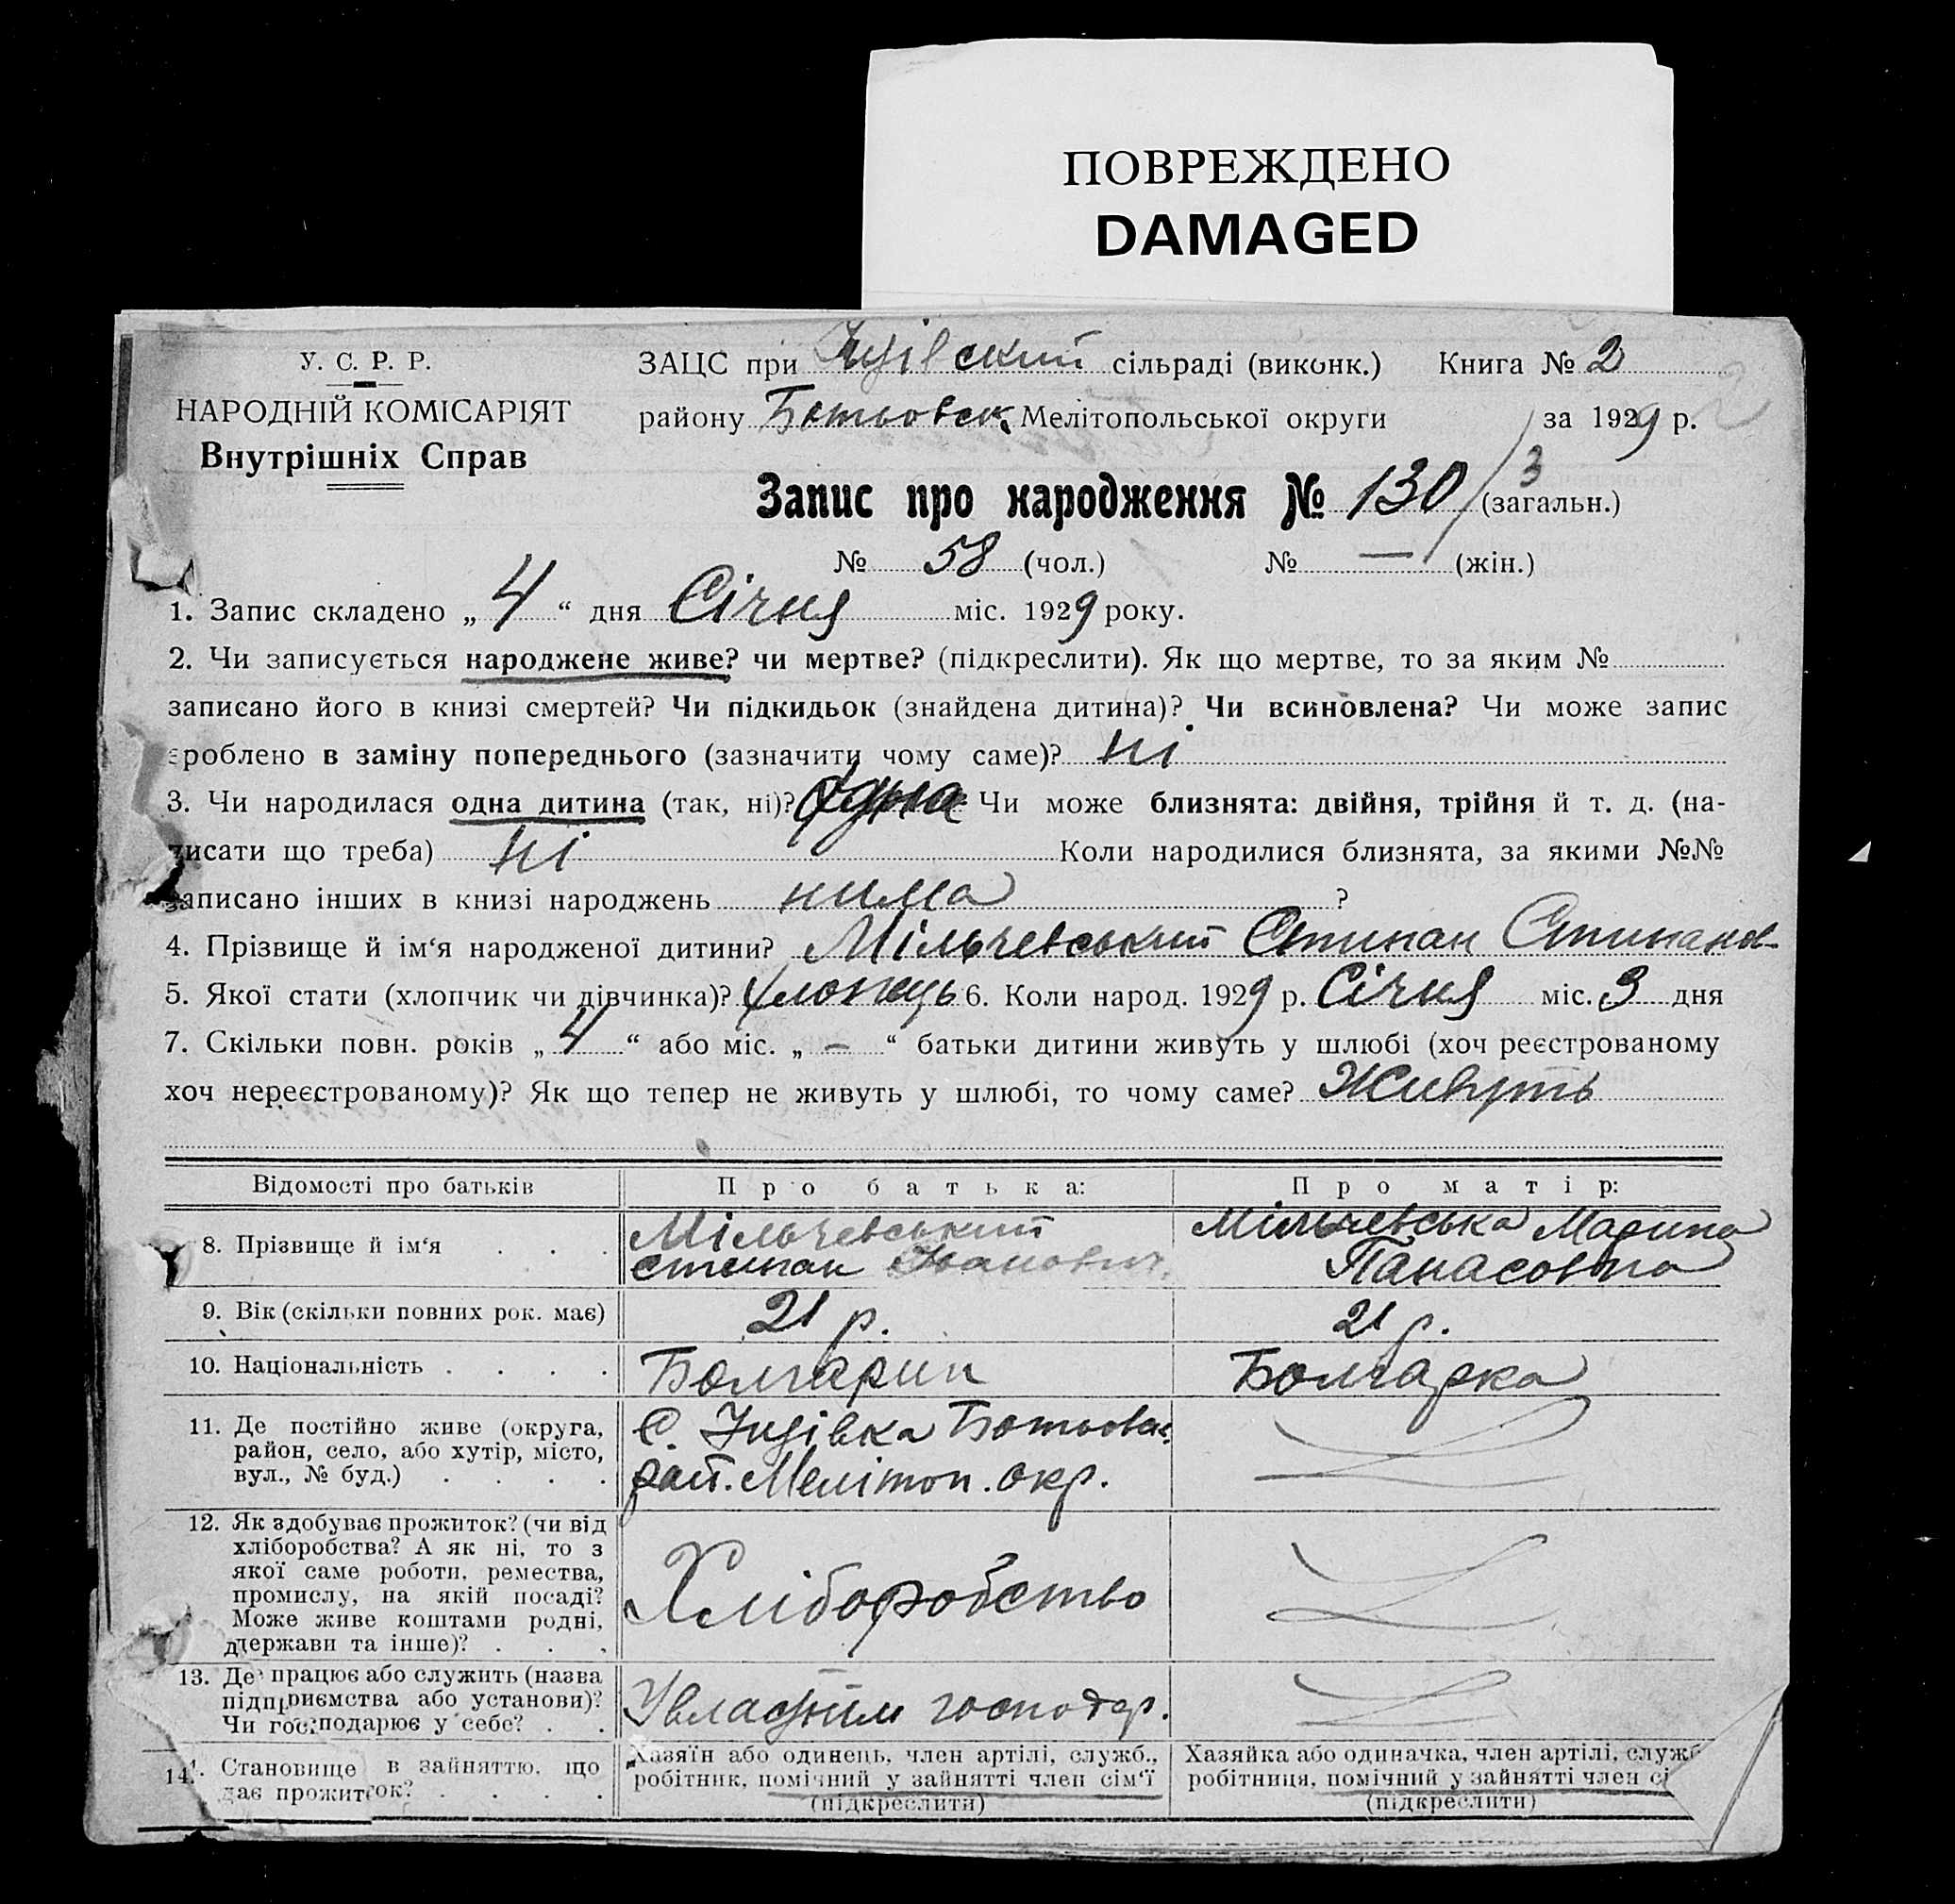 ПОВРЕЖДЕНО
DAMAGED
У. С. Р. Р.
НАРОДНІЙ КОМІСАРІЯТ
Внутрішніх Справ
ЗАЦС при сільраді (виконк.) Книга № 2
району Ботьовск. Мелітопольської округи за 1929 р.
Запис про народження № 130/3 (загальн.)
№ 58 (чол.) № — (жін.)
1. Запис складено „ 4 “ дня Січня міс. 1929 року.
2. Чи записується народжене живе? чи мертве? (підкреслити). Як що мертве, то за яким №
записано його в книзі смертей? Чи підкидьок (знайдена дитина)? Чи всиновлена? Чи може запис
зроблено в заміну попереднього (зазначити чому саме)? ні
3. Чи народилася одна дитина (так, ні)? одна Чи може близнята: двійня, трійня й т. д. (на-
писати що треба) ні Коли народилися близнята, за якими №№
записано інших в книзі народжень нима ?
4. Прізвище й ім‘я народженої дитини? Мільчевський Стипан Стипанов-
5. Якої стати (хлопчик чи дівчинка)? хлопець 6. Коли народ. 1929 р. Січня міс. 3 дня
7. Скільки повн. років „ 4 “ або міс. „ — “ батьки дитини живуть у шлюбі (хоч реєстрованому
хоч нереєстрованому)? Як що тепер не живуть у шлюбі, то чому саме? Живуть
Відомості про батьків Про батька: Про матір:
8. Прізвище й ім‘я . . . Мільчевський Стипан Іванович. Мільчевська Марина Панасовна
9. Вік (скільки повних рок. має) 21 р. 21 р.
10. Національність . . . . Болгарин Болгарка
11. Де постійно живе (округа,
район, село, або хутір, місто,
вул., № буд.) . . . .
С. Ботьовск.
рай. Мелітоп. окр.
12. Як здобуває прожиток? (чи від
хліборобства? А як ні, то з
якої саме роботи, ремества,
промислу, на якій посаді?
Може живе коштами родні,
держави та інше)? . . .
Хліборобство
13. Де працює або служить (назва
підприємства або установи)?
Чи господарює у себе? . .
У власним господар.
14. Становище в зайняттю, що
дає прожиток? . . . .
Хазяїн або одинець, член артілі, служб.,
робітник, помічний у зайнятті член сім‘ї
(підкреслити)
Хазяйка або одиначка, член артілі, служб
робітниця, помічний у зайнятті член сі
(підкреслити)